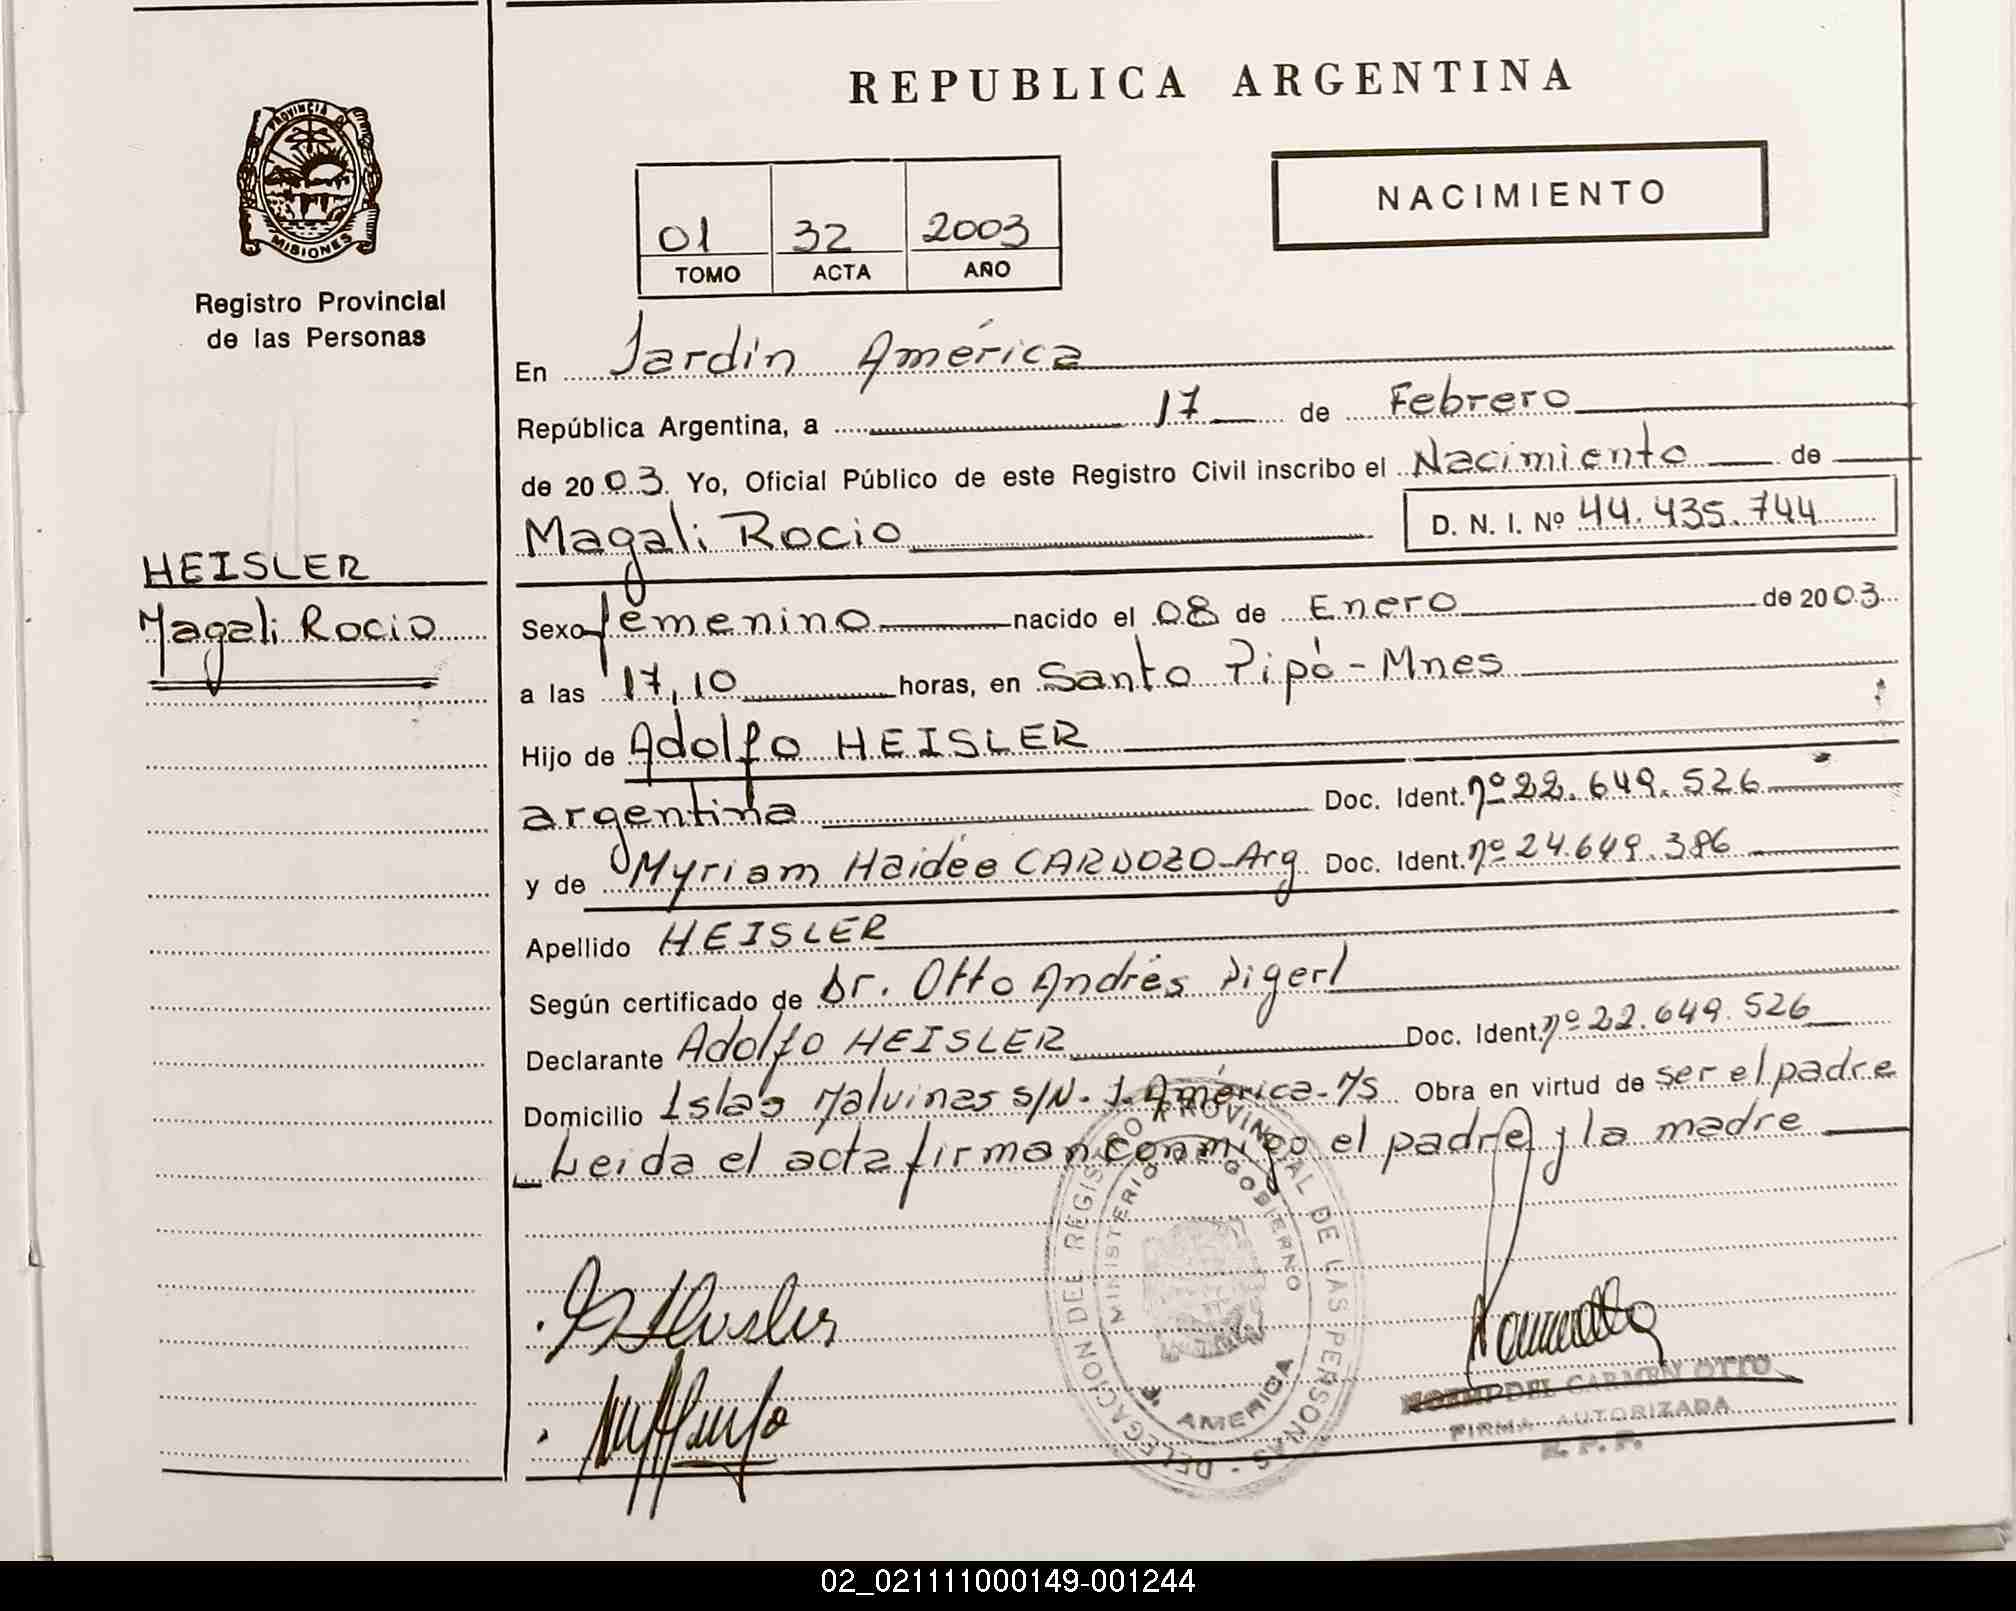 REPUBLICA ARGENTINA
PROVINCIA DE
MISIONES
Registro Provincial
de las Personas
NACIMIENTO
01 32 2003
TOMO ACTA AÑO
En Jardín América
República Argentina, a 17 de Febrero
de 2003. Yo, Oficial Público de este Registro Civil inscribo el Nacimiento de
Magali Rocio D. N. I. Nº 44.435.744
HEISLER
Magali Rocio
Sexo femenino nacido el 08 de Enero de 2003
a las 17,10 horas, en Santo Pipó - Mnes
Hijo de Adolfo HEISLER
argentina Doc. Ident. nº 22.649.526
y de Myriam Haidée CARDOZO-Arg Doc. Ident. nº 24.649.386
Apellido HEISLER
Según certificado de Dr. Otto Andrés Pigerl
Declarante Adolfo HEISLER Doc. Ident. nº 22.649.526
Domicilio Islas Malvinas s/N. J. América-Ms Obra en virtud de ser el padre
Leida el acta firman conmigo el padre y la madre
DELEGACION DEL REGISTRO PROVINCIAL DE LAS PERSONAS -
MINISTERIO DE GOBIERNO
J. AMERICA
DEL CARMEN OTTO
FIRMA AUTORIZADA
R. P. P.
02_021111000149-001244